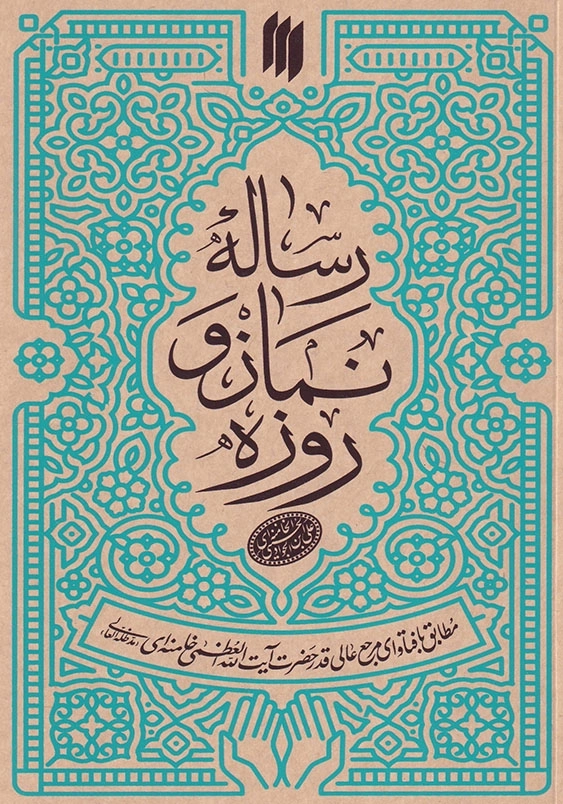 رسالهٔ
نماز و
روزه
مُطابق با فتاوای مرجع عالی قدر حضرت آیت الله العُظمیٰ خامنه‌ای (مدّظلّه‌العالی)